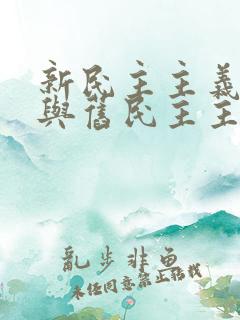 新民主主義
與舊民主主
亂步非魚
未經同意禁止轉載